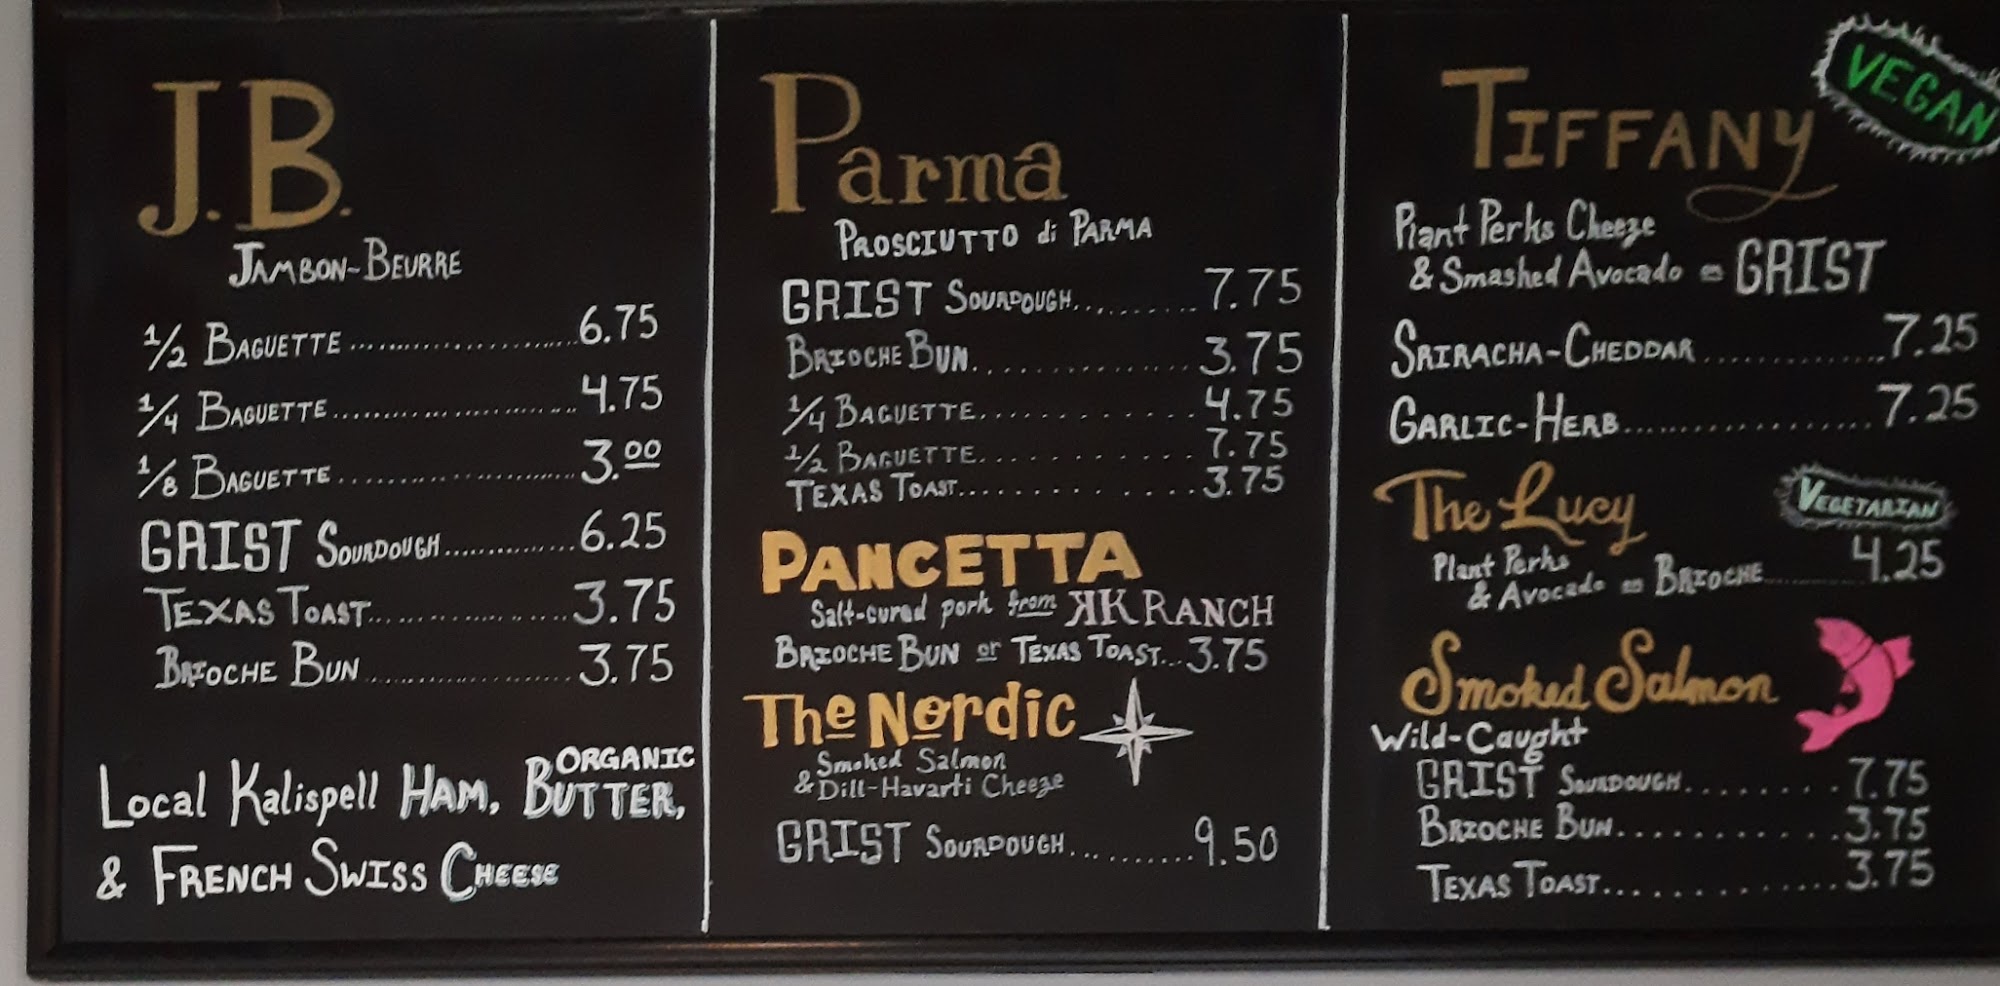 J.B.
JAMBON-BEURRE
1/2 BAGUETTE ........................ 6.75
1/4 BAGUETTE ........................ 4.75
1/8 BAGUETTE ........................ 3.00
GRIST SOURDOUGH ............... 6.25
TEXAS TOAST .................... 3.75
BRIOCHE BUN .................... 3.75
Local Kalispell HAM, ORGANIC BUTTER,
& FRENCH SWISS CHEESE
Parma
PROSCIUTTO di PARMA
GRIST SOURDOUGH .......... 7.75
BRIOCHE BUN ............... 3.75
1/4 BAGUETTE ............ 4.75
1/2 BAGUETTE ............ 7.75
TEXAS TOAST ............. 3.75
PANCETTA
Salt-cured pork from KK RANCH
BRIOCHE BUN or TEXAS TOAST... 3.75
The Nordic
Smoked Salmon
& Dill-Havarti Cheeze
GRIST SOURDOUGH .......... 9.50
TIFFANY
VEGAN
Plant Perks Cheeze
& Smashed Avocado on GRIST
SRIRACHA-CHEDDAR .............. 7.25
GARLIC-HERB .................. 7.25
The Lucy
VEGETARIAN
Plant Perks
& Avocado on BRIOCHE .......... 4.25
Smoked Salmon
Wild-Caught
GRIST SOURDOUGH ......... 7.75
BRIOCHE BUN ............ 3.75
TEXAS TOAST ............. 3.75